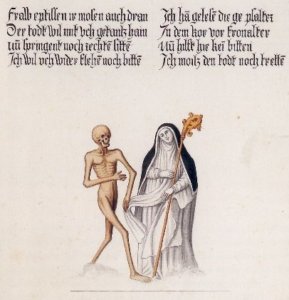 Fraw eptissen ir mosen auch dran
Der todt wil mit vch getantz hain
Nũ springent noch rechte sittẽ
Ich wil vch wider flehe noch bitte
Ich hã gelese die ge psalter
In dem kor vor fronalter
Nũ hilfft hie kei bitten
Ich mois den todt noch trette